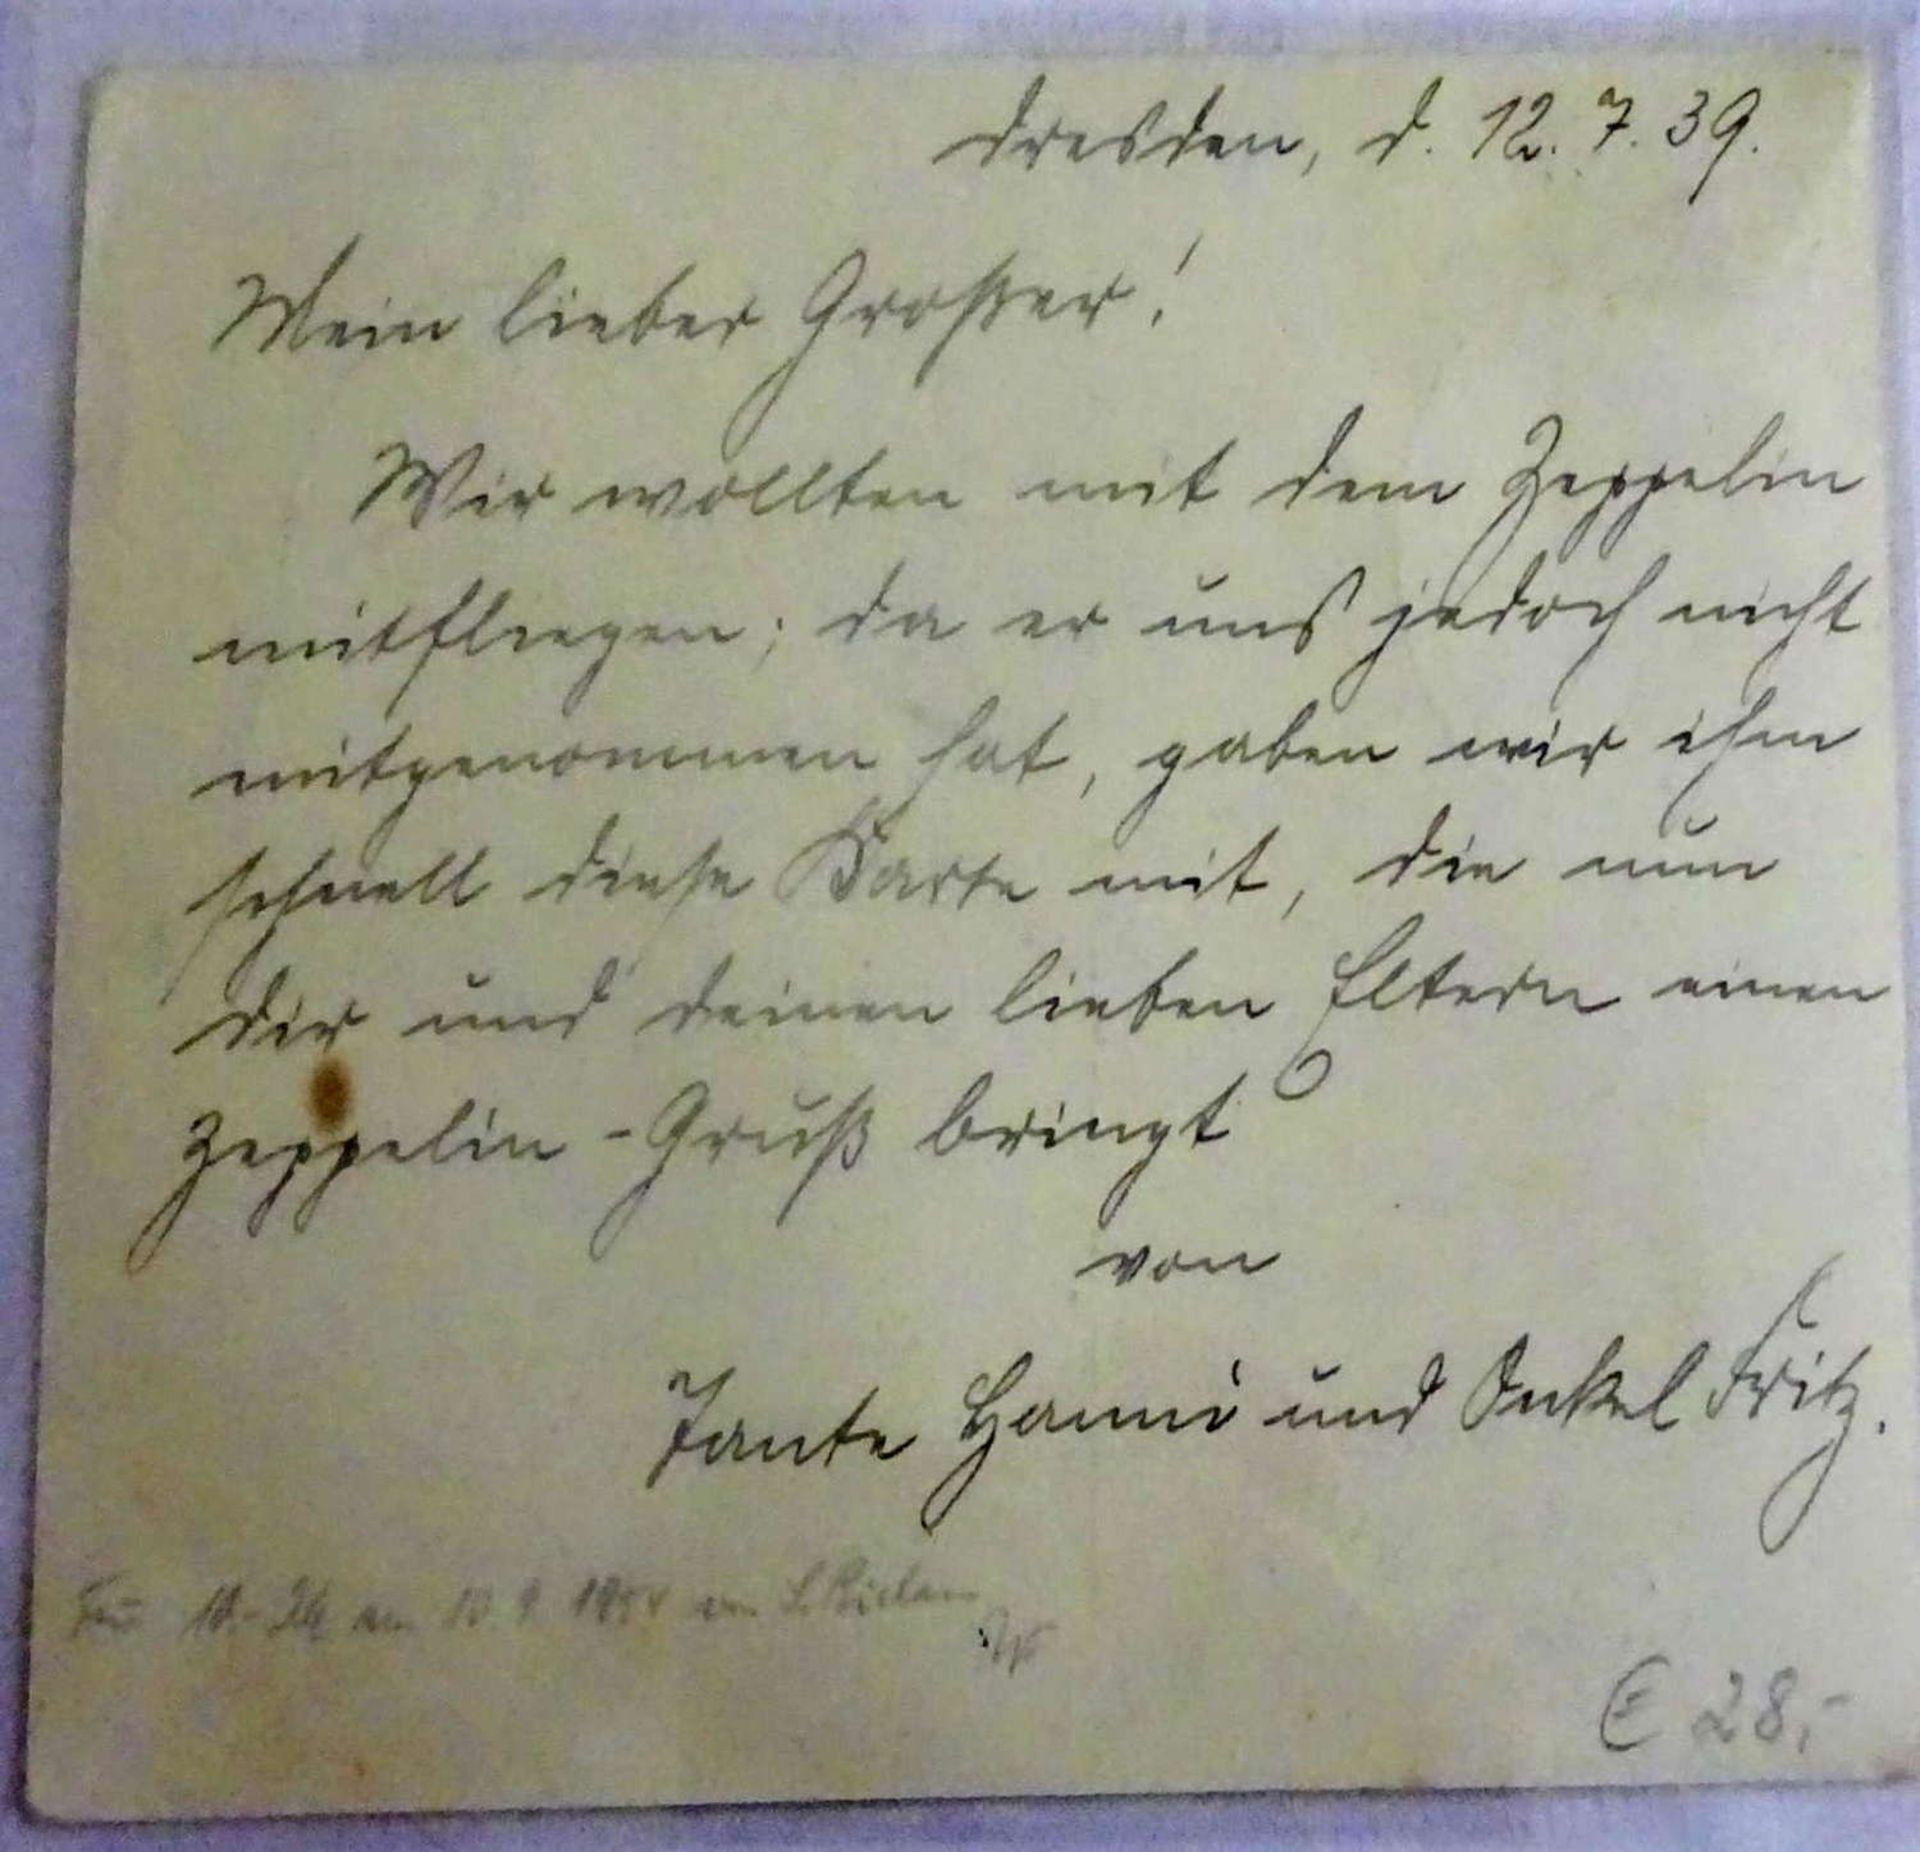 Dresden, d. 12. 7. 39.
Mein lieber Großer!
Wir wollten mit dem Zeppelin
mitfliegen; da er uns jedoch nicht
mitgenommen hat, gaben wir ihm
schnell diese Karte mit, die nun
dir und deinen lieben Eltern einen
Zeppelin-Gruß bringt
von
Tante Hanni und Onkel Fritz.
€ 28,-